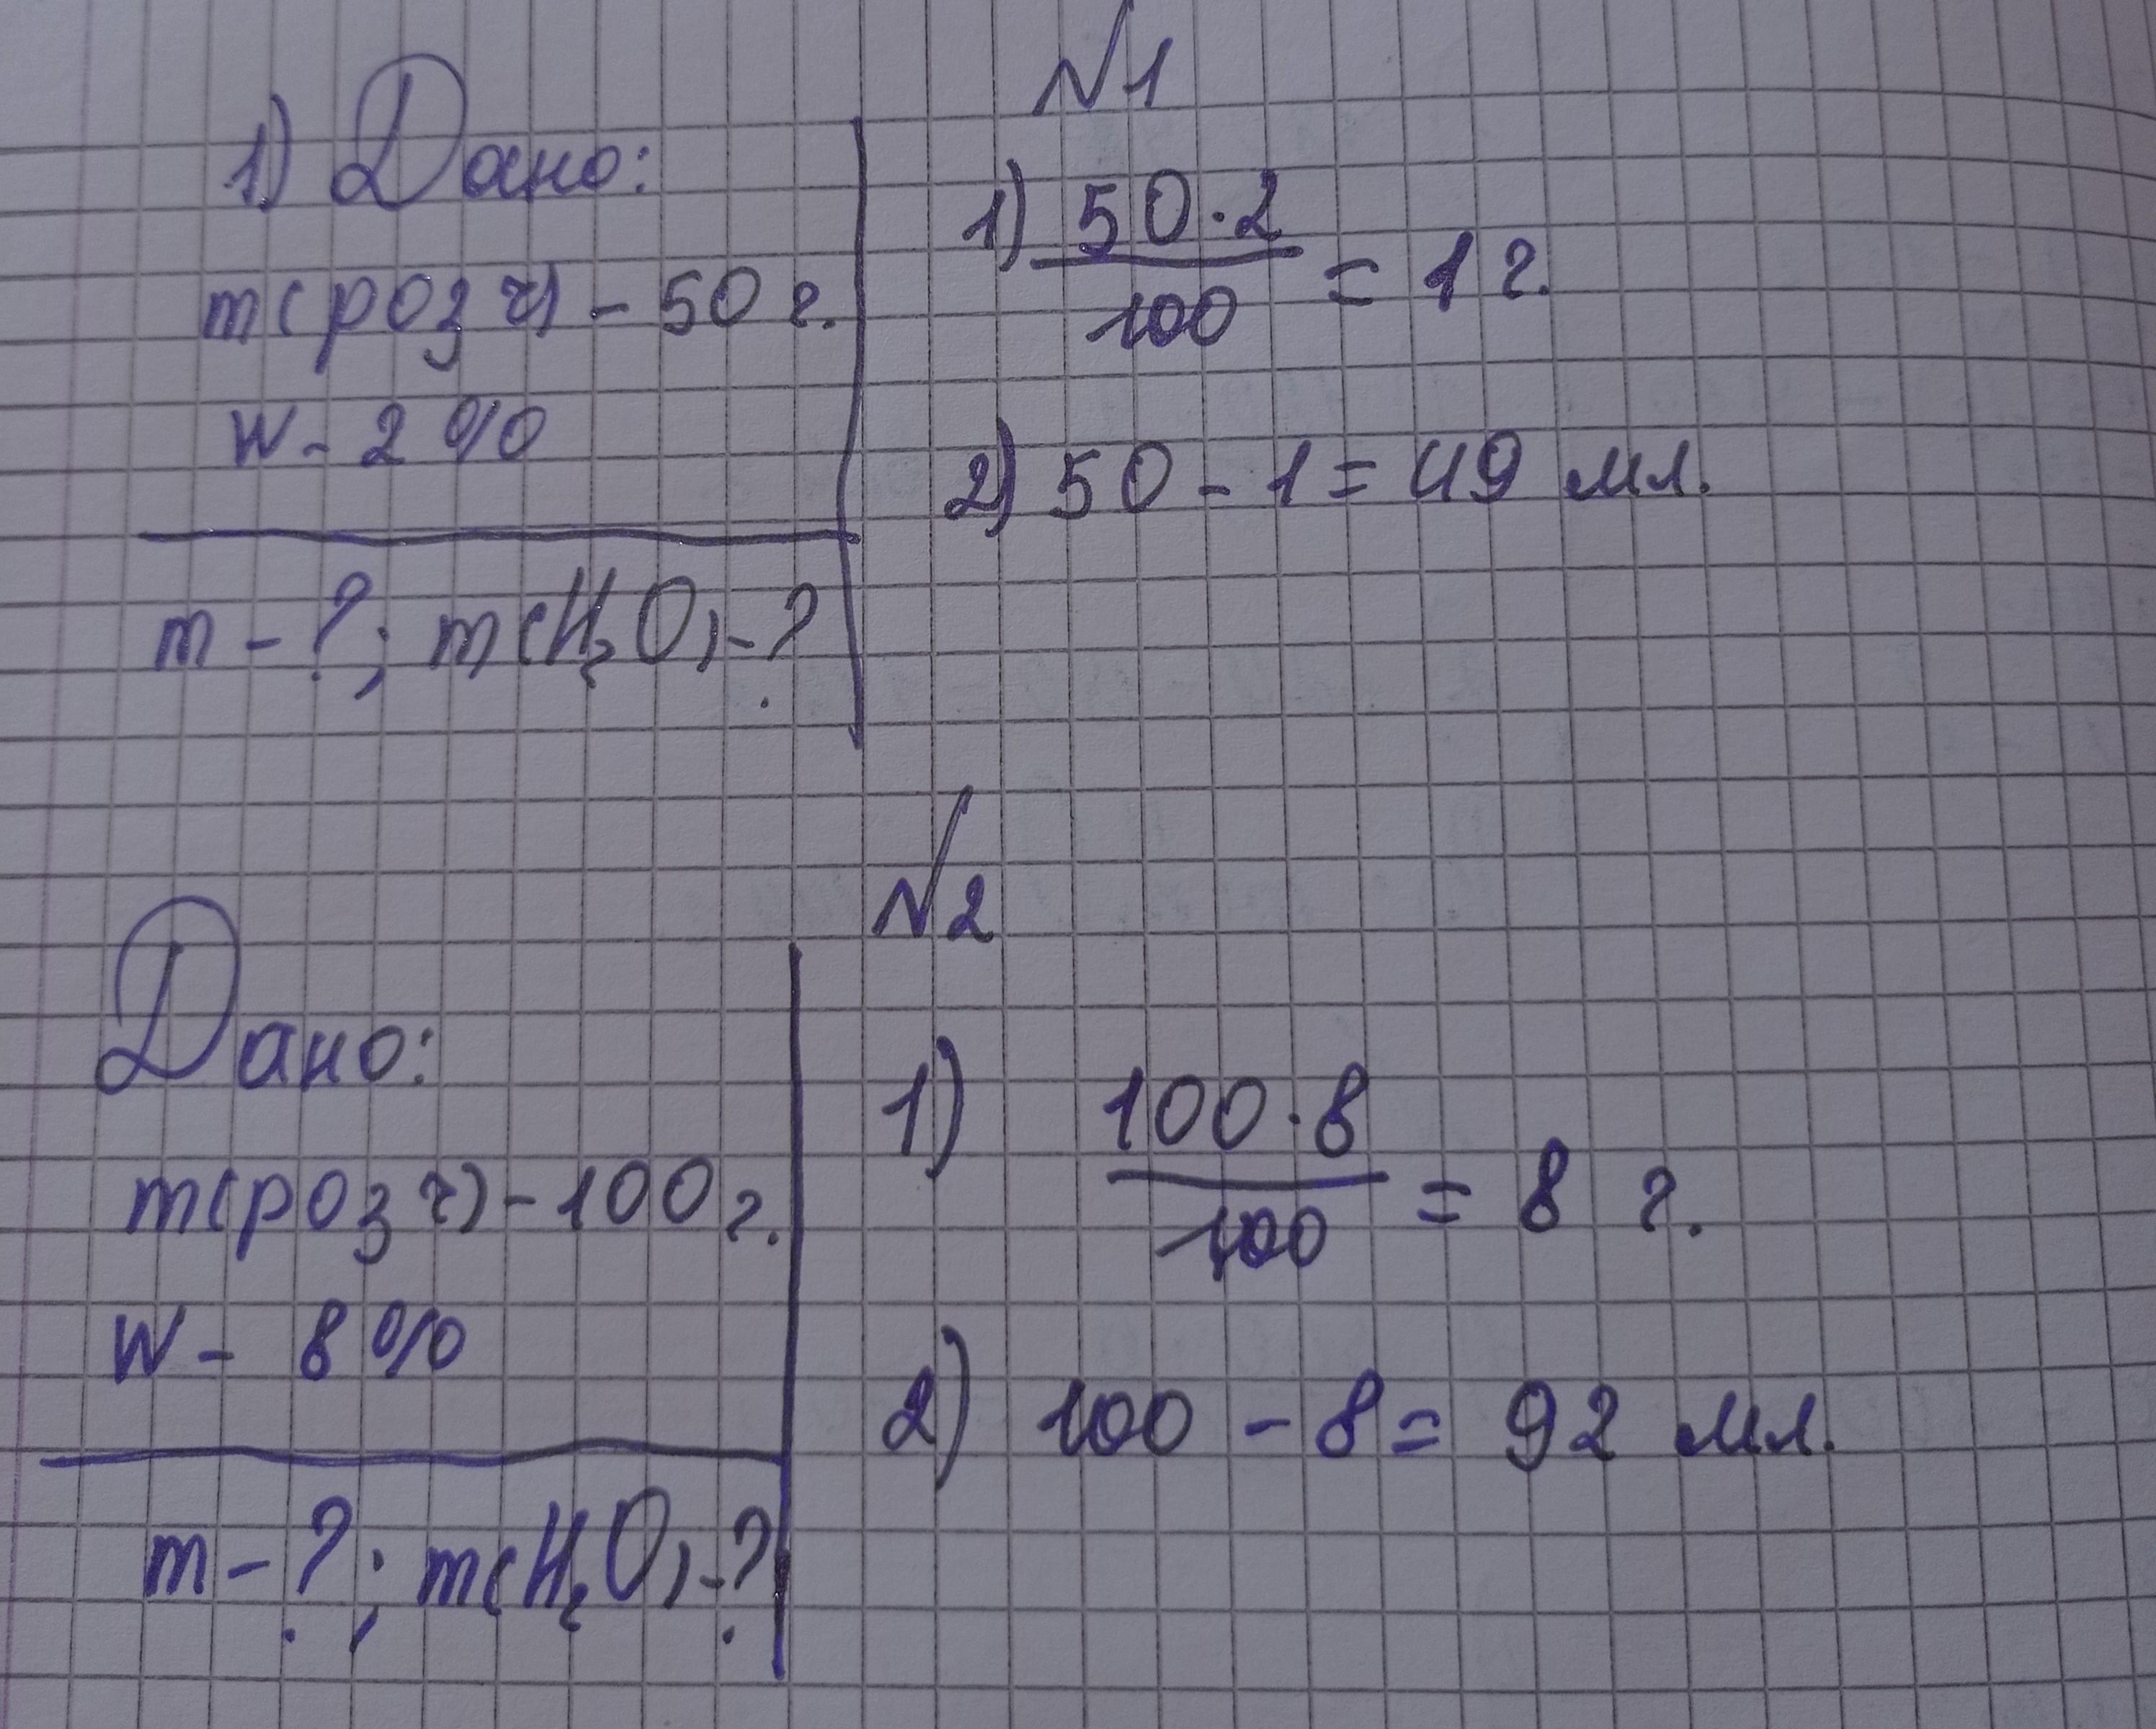 №1
1) Дано:
m(розч) - 50 г.
W - 2 %
m - ?; m(H₂O) - ?
1) 50·2
100
= 1 г.
2) 50 - 1 = 49 мл.
№2
Дано:
m(розч) - 100 г.
W - 8 %
m - ?; m(H₂O) - ?
1) 100·8
100
= 8 г.
2) 100 - 8 = 92 мл.